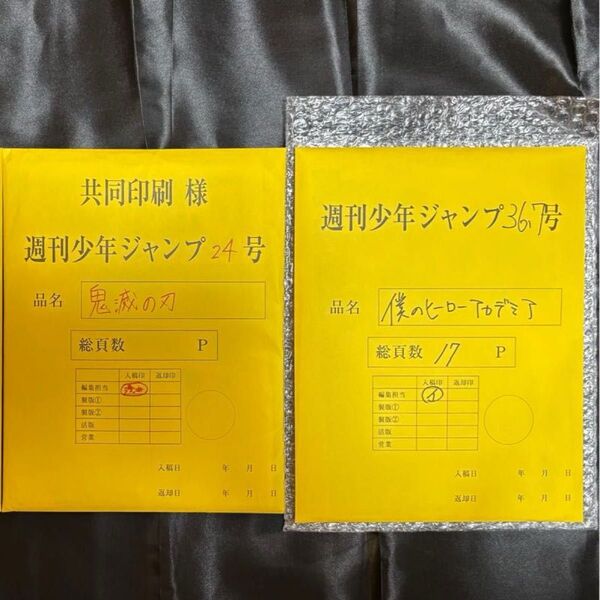 共同印刷 様
週刊少年ジャンプ24号
品名 鬼滅の刃
総頁数 P
入稿印 返却印
編集担当
製版①
製版②
活版
営業
入稿日 年 月 日
返却日 年 月 日
週刊少年ジャンプ36.7号
品名 僕のヒーローアカデミア
総頁数 17 P
入稿印 返却印
編集担当 イ
製版①
製版②
活版
営業
入稿日 年 月 日
返却日 年 月 日